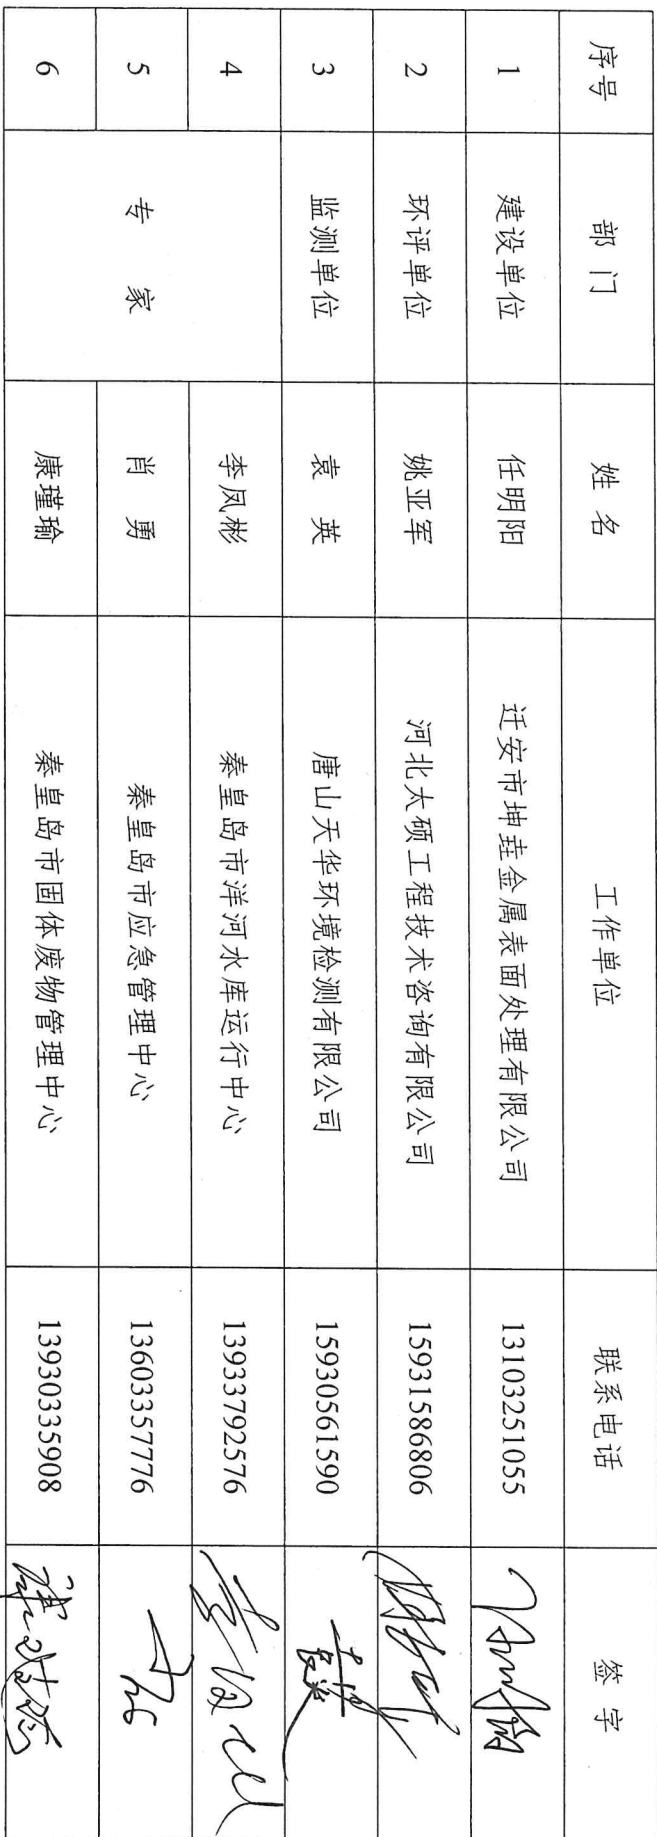 序号 部门 姓名 工作单位 联系电话 签字
1 建设单位 任明阳 迁安市坤珪金属表面处理有限公司 13103251055
2 环评单位 姚亚军 河北太硕工程技术咨询有限公司 15931586806
3 监测单位 袁英 唐山天华环境检测有限公司 15930561590
4 专家 李凤彬 秦皇岛市洋河水库运行中心 13933792576
5 肖勇 秦皇岛市应急管理中心 13603357776
6 康瑾瑜 秦皇岛市固体废物管理中心 13930335908